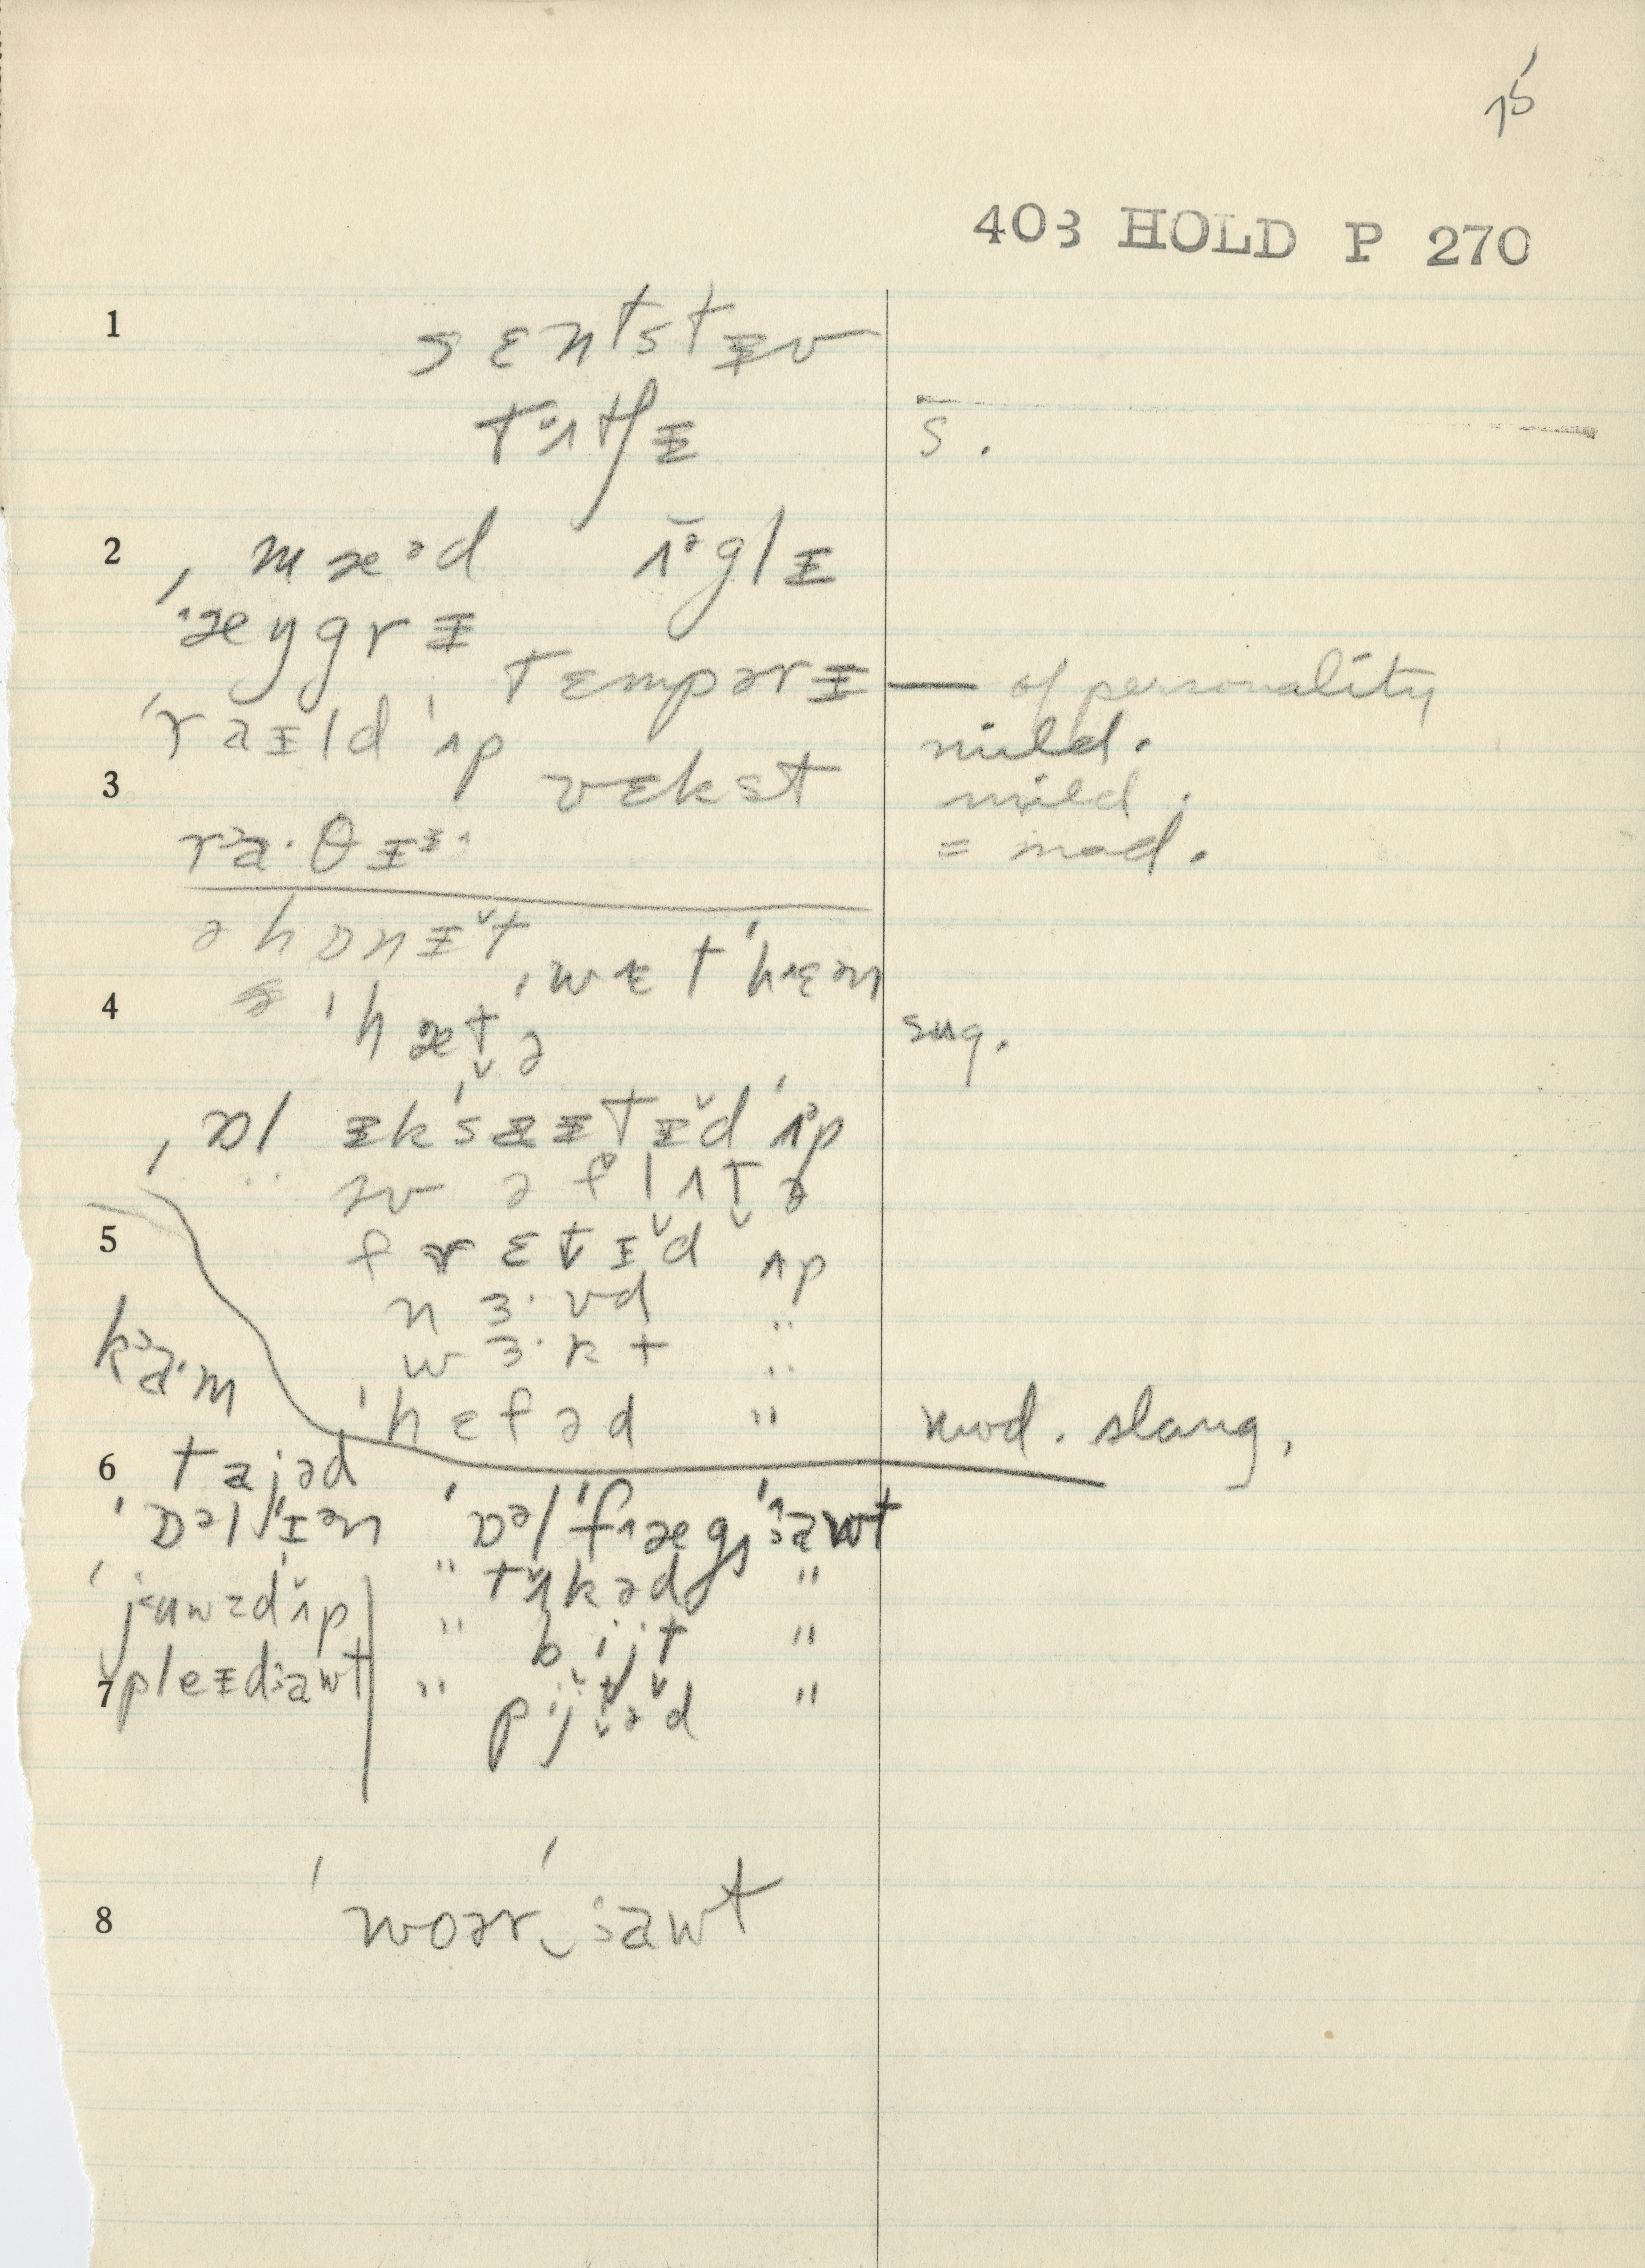 75
403 HOLD P 270
1 sɛntstɪv
tʌtʃɪ s.
2 ˌmæᵊd ʌᵊglɪ
ˈæŋgrɪ
tɛmpərɪ — of personality
ˈraɪld ˈʌp mild.
3 vɛkst mild.
raˑθɪ = mad.
ə hɒnɪt̬
ˌwɛt ˈhɛn
4 ə ˈhæt̬ə sug.
ˌɒl ɪkˈsaɪtɪd ˈʌp
ɪv ə flʌt̬ə
5 frɛt̬ɪd ʌp
nɜˑvd "
wɜˑkt "
kaˑm
ˈhɛfəd " mod. slang.
6 tajəd
ˈɒəlˈɪən ˈɒəlˈfægzˈawt
" tʌkəd "
juwzdʌp " bijt "
7 pleɪdawt " pijt̬əd "
8 ˈwoərˈawt